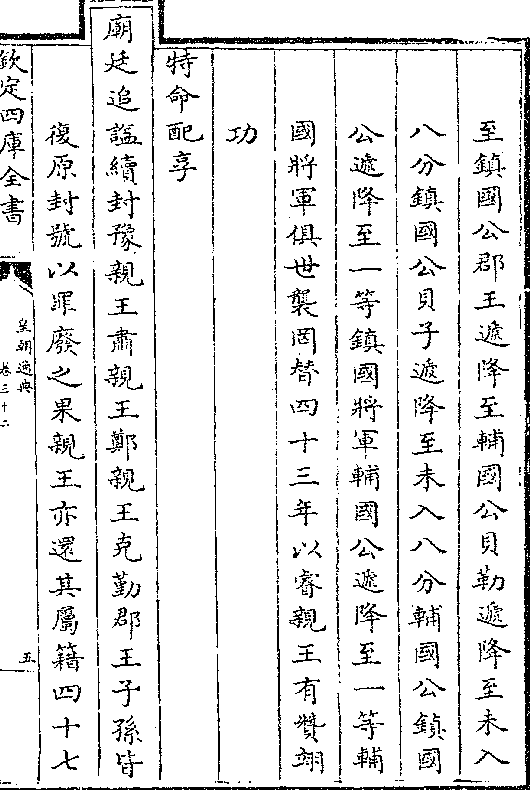 至鎮國公郡王遞降至輔國公貝勒遞降至未入
八分鎮國公貝子遞降至未入八分輔國公鎮國
公遞降至一等鎮國將軍輔國公遞降至一等輔
國將軍俱世襲罔替四十三年以睿親王有贊翊
功
特命配享
廟廷追諡續封豫親王肅親王鄭親王克勤郡王子孫皆
復原封號以罪廢之果親王亦還其屬籍四十七
欽定四庫全書
皇朝通典
卷三十二
五